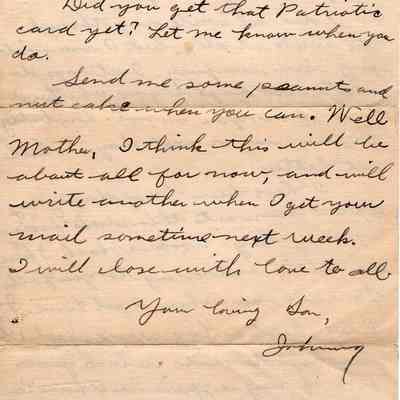 Did you get that Patriotic
card yet? Let me know when you
do.
Send me some peanuts and
nut cake when you can. Well
Mother, I think this will be
about all for now, and will
write another when I get your
mail sometime next week.
I will close with love to all.
Your loving Son,
Johnny